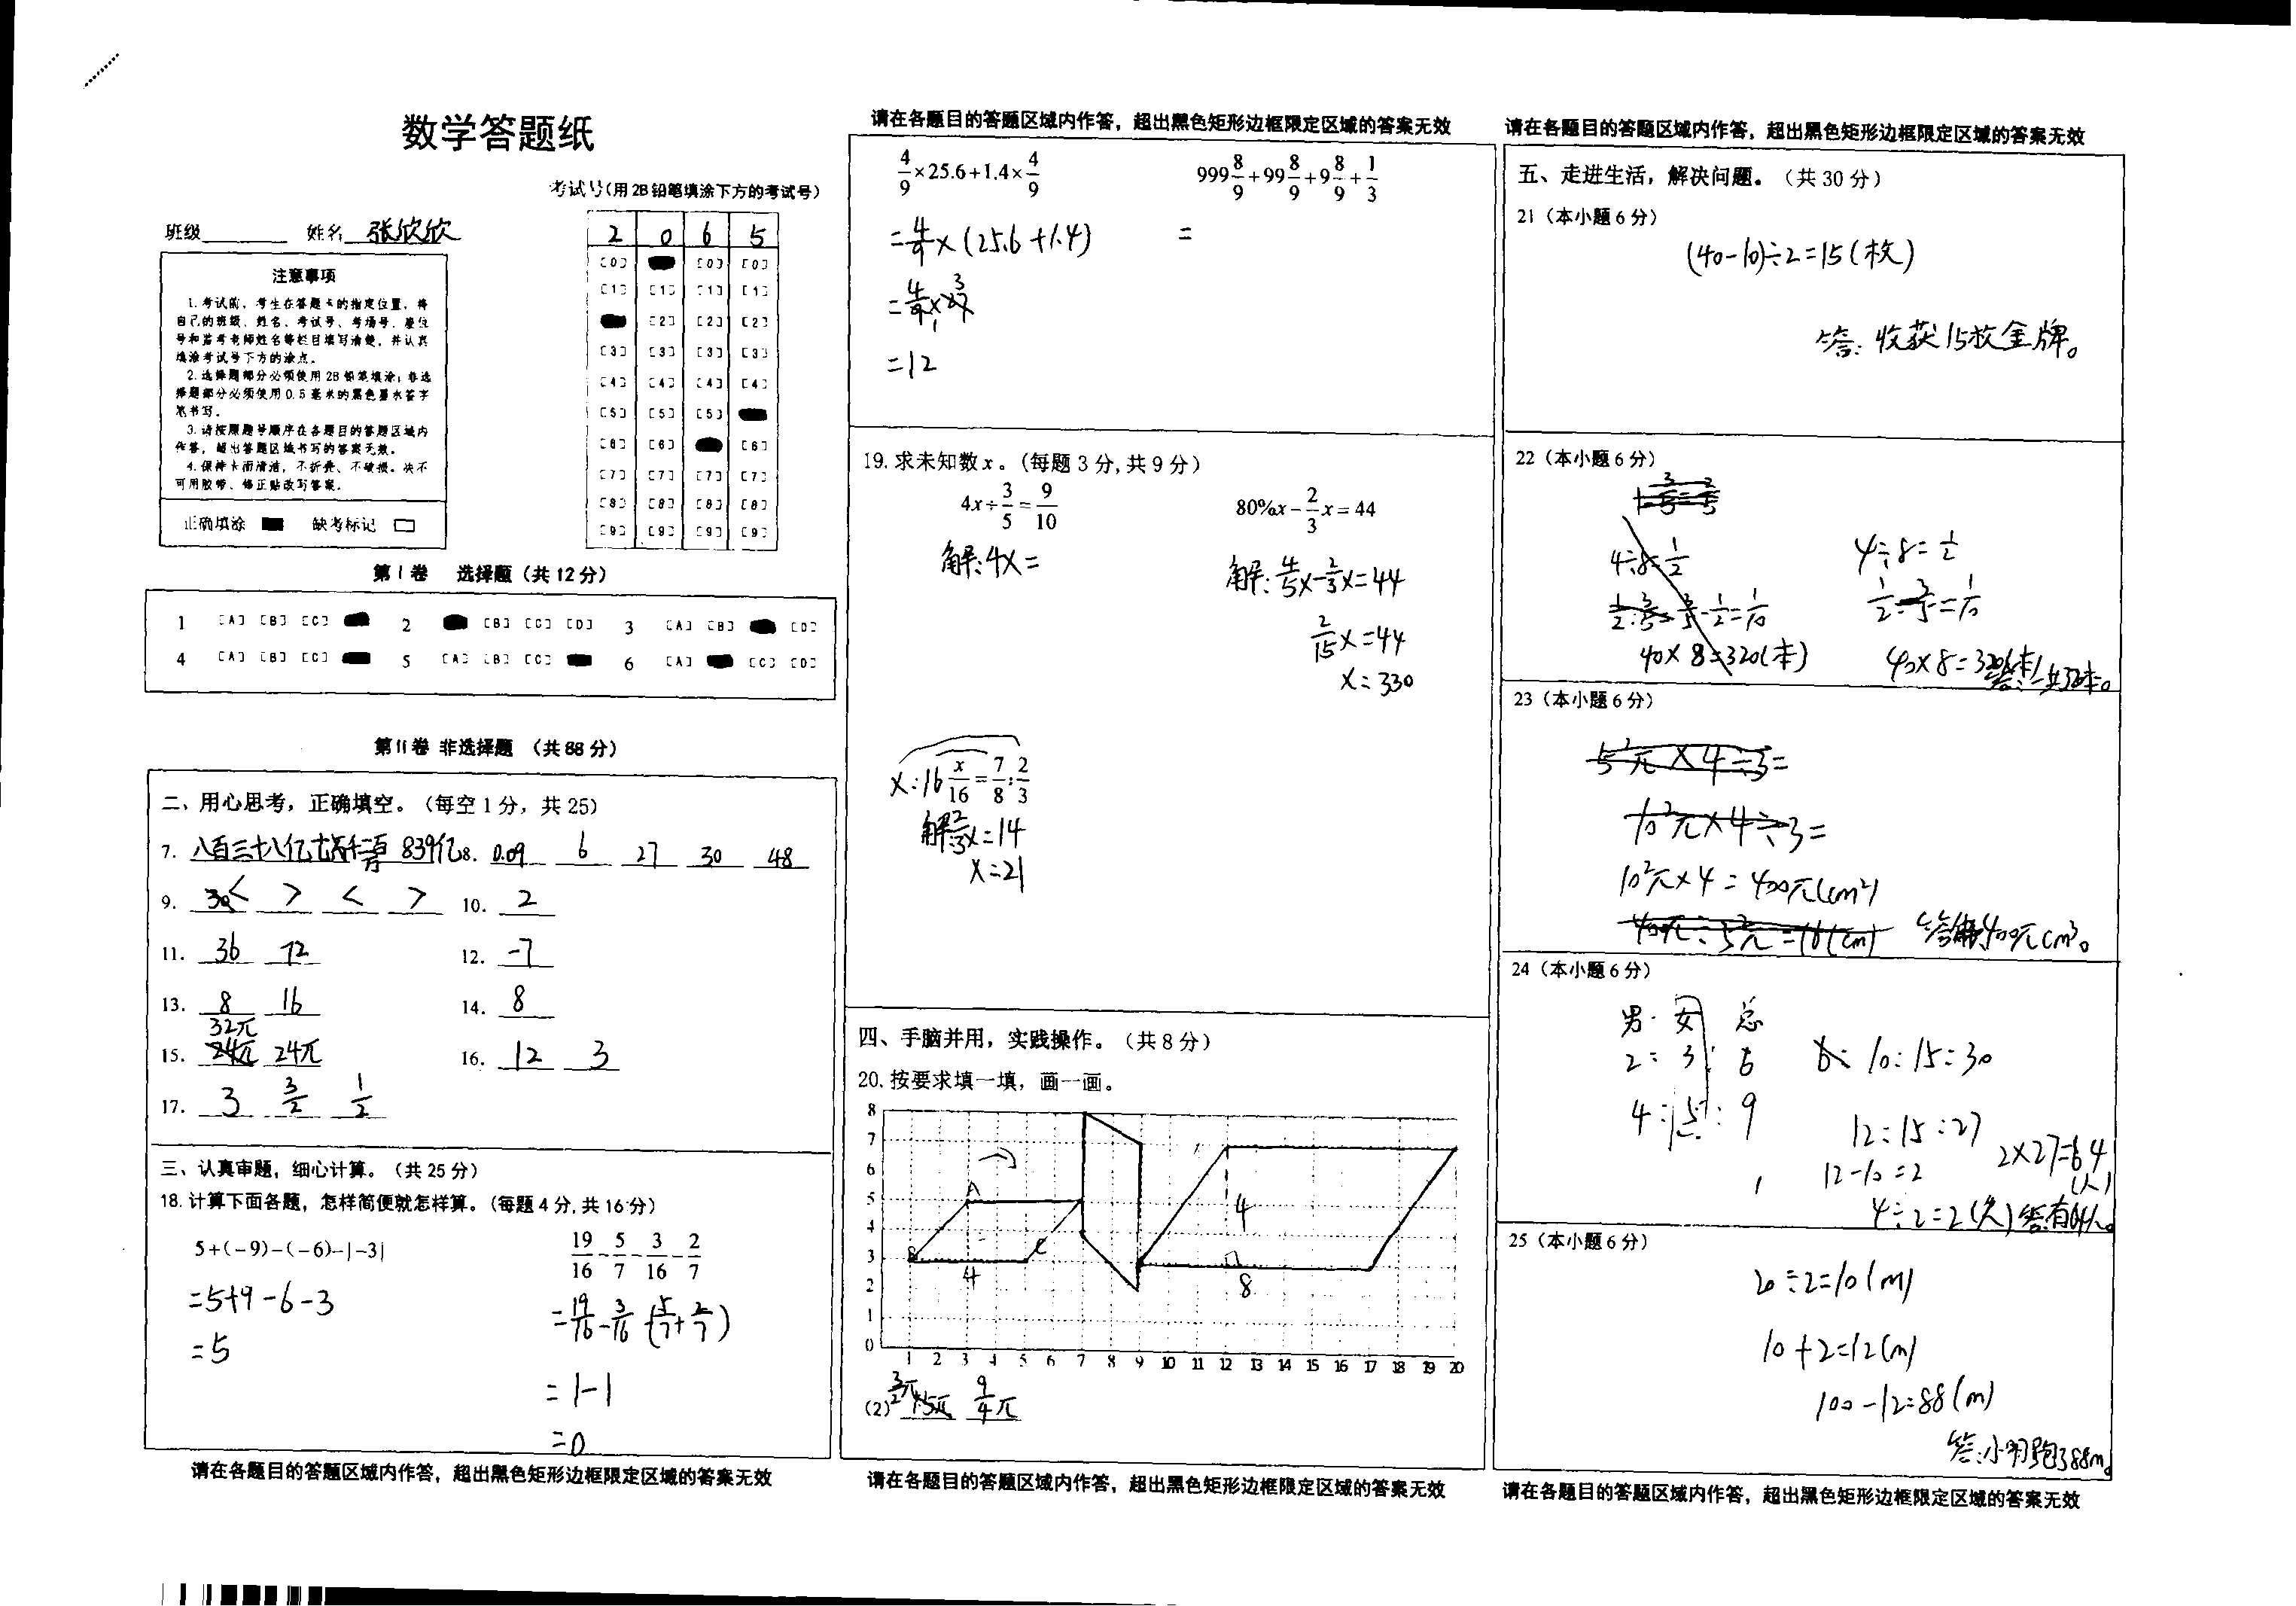 数学答题纸
考试号(用2B铅笔填涂下方的考试号)
班级 姓名 张欣欣
2 0 6 5
注意事项
1.考试前，考生在答题卡的指定位置，将
自己的班级、姓名、考试号、考场号、座位
号和监考老师姓名等栏目填写清楚，并认真
填涂考试号下方的涂点。
2.选择题部分必须使用2B铅笔填涂；非选
择题部分必须使用0.5毫米的黑色墨水签字
笔书写。
3.请按照题号顺序在各题目的答题区域内
作答，超出答题区域书写的答案无效。
4.保持卡面清洁，不折叠、不破损。决不
可用胶带、修正贴改写答案。
正确填涂 缺考标记
[0] [0] [0]
[1] [1] [1] [1]
[2] [2] [2]
[3] [3] [3] [3]
[4] [4] [4] [4]
[5] [5] [5]
[6] [6] [6]
[7] [7] [7] [7]
[8] [8] [8] [8]
[9] [9] [9] [9]
第I卷 选择题（共12分）
1 [A] [B] [C] 2 [B] [C] [D] 3 [A] [B] [D]
4 [A] [B] [C] 5 [A] [B] [C] 6 [A] [C] [D]
第II卷 非选择题 （共88分）
二、用心思考，正确填空。（每空1分，共25）
7. 八百三十八亿 839亿 8. 0.09 6 27 30 48
9. < > < > 10. 2
11. 36 72 12. -7
13. 8 16 14. 8
15. 32π 24π 24π 16. 12 3
17. 3 3/2 1/2
三、认真审题，细心计算。（共25分）
18.计算下面各题，怎样简便就怎样算。(每题4分,共16分)
5+(-9)-(-6)-|-3|
=5+9-6-3
=5
19/16-5/7-3/16-2/7
=19/16-3/16-(5/7+2/7)
=1-1
=0
请在各题目的答题区域内作答，超出黑色矩形边框限定区域的答案无效
请在各题目的答题区域内作答，超出黑色矩形边框限定区域的答案无效
4/9×25.6+1.4×4/9
=4/9×(25.6+1.4)
=4/9×27
3
1
=12
999 8/9+99 8/9+9 8/9+1/3
=
19.求未知数x。(每题3分,共9分)
4x÷3/5=9/10
解:4x=
80%x-2/3x=44
解:4/5x-2/3x=44
2/15x=44
x=330
x:16 x/16=7/8:2/3
解:2/3x=14
x=21
四、手脑并用，实践操作。（共8分）
20.按要求填一填，画一画。
8
7
6
5
4
3
2
1
0
A
B
C
4
4
8
1 2 3 4 5 6 7 8 9 10 11 12 13 14 15 16 17 18 19 20
(2) 3/2π 1.5π 9/4π
请在各题目的答题区域内作答，超出黑色矩形边框限定区域的答案无效
请在各题目的答题区域内作答，超出黑色矩形边框限定区域的答案无效
五、走进生活，解决问题。（共30分）
21（本小题6分）
(40-10)÷2=15(枚)
答:收获15枚金牌。
22（本小题6分）
1-3/5=2/5
4÷8=1/2
3/5-1/2=1/10
40×8=320(本)
4÷8=1/2
1/2-3/5=1/10
40×8=320(本)
答:一共320本。
23（本小题6分）
5²π×4÷3=
10²π×4÷3=
10²π×4=400π(cm²)
400π÷5²π=16(cm)
400πcm³。
24（本小题6分）
男 女 总
2:3:6
4:5:9
10:15:30
12:15:27
12-10=2
2×27=64
(人)
4÷2=2(人) 答:有64人。
25（本小题6分）
20÷2=10(m)
10+2=12(m)
100-12=88(m)
答:小明跑了88m。
请在各题目的答题区域内作答，超出黑色矩形边框限定区域的答案无效